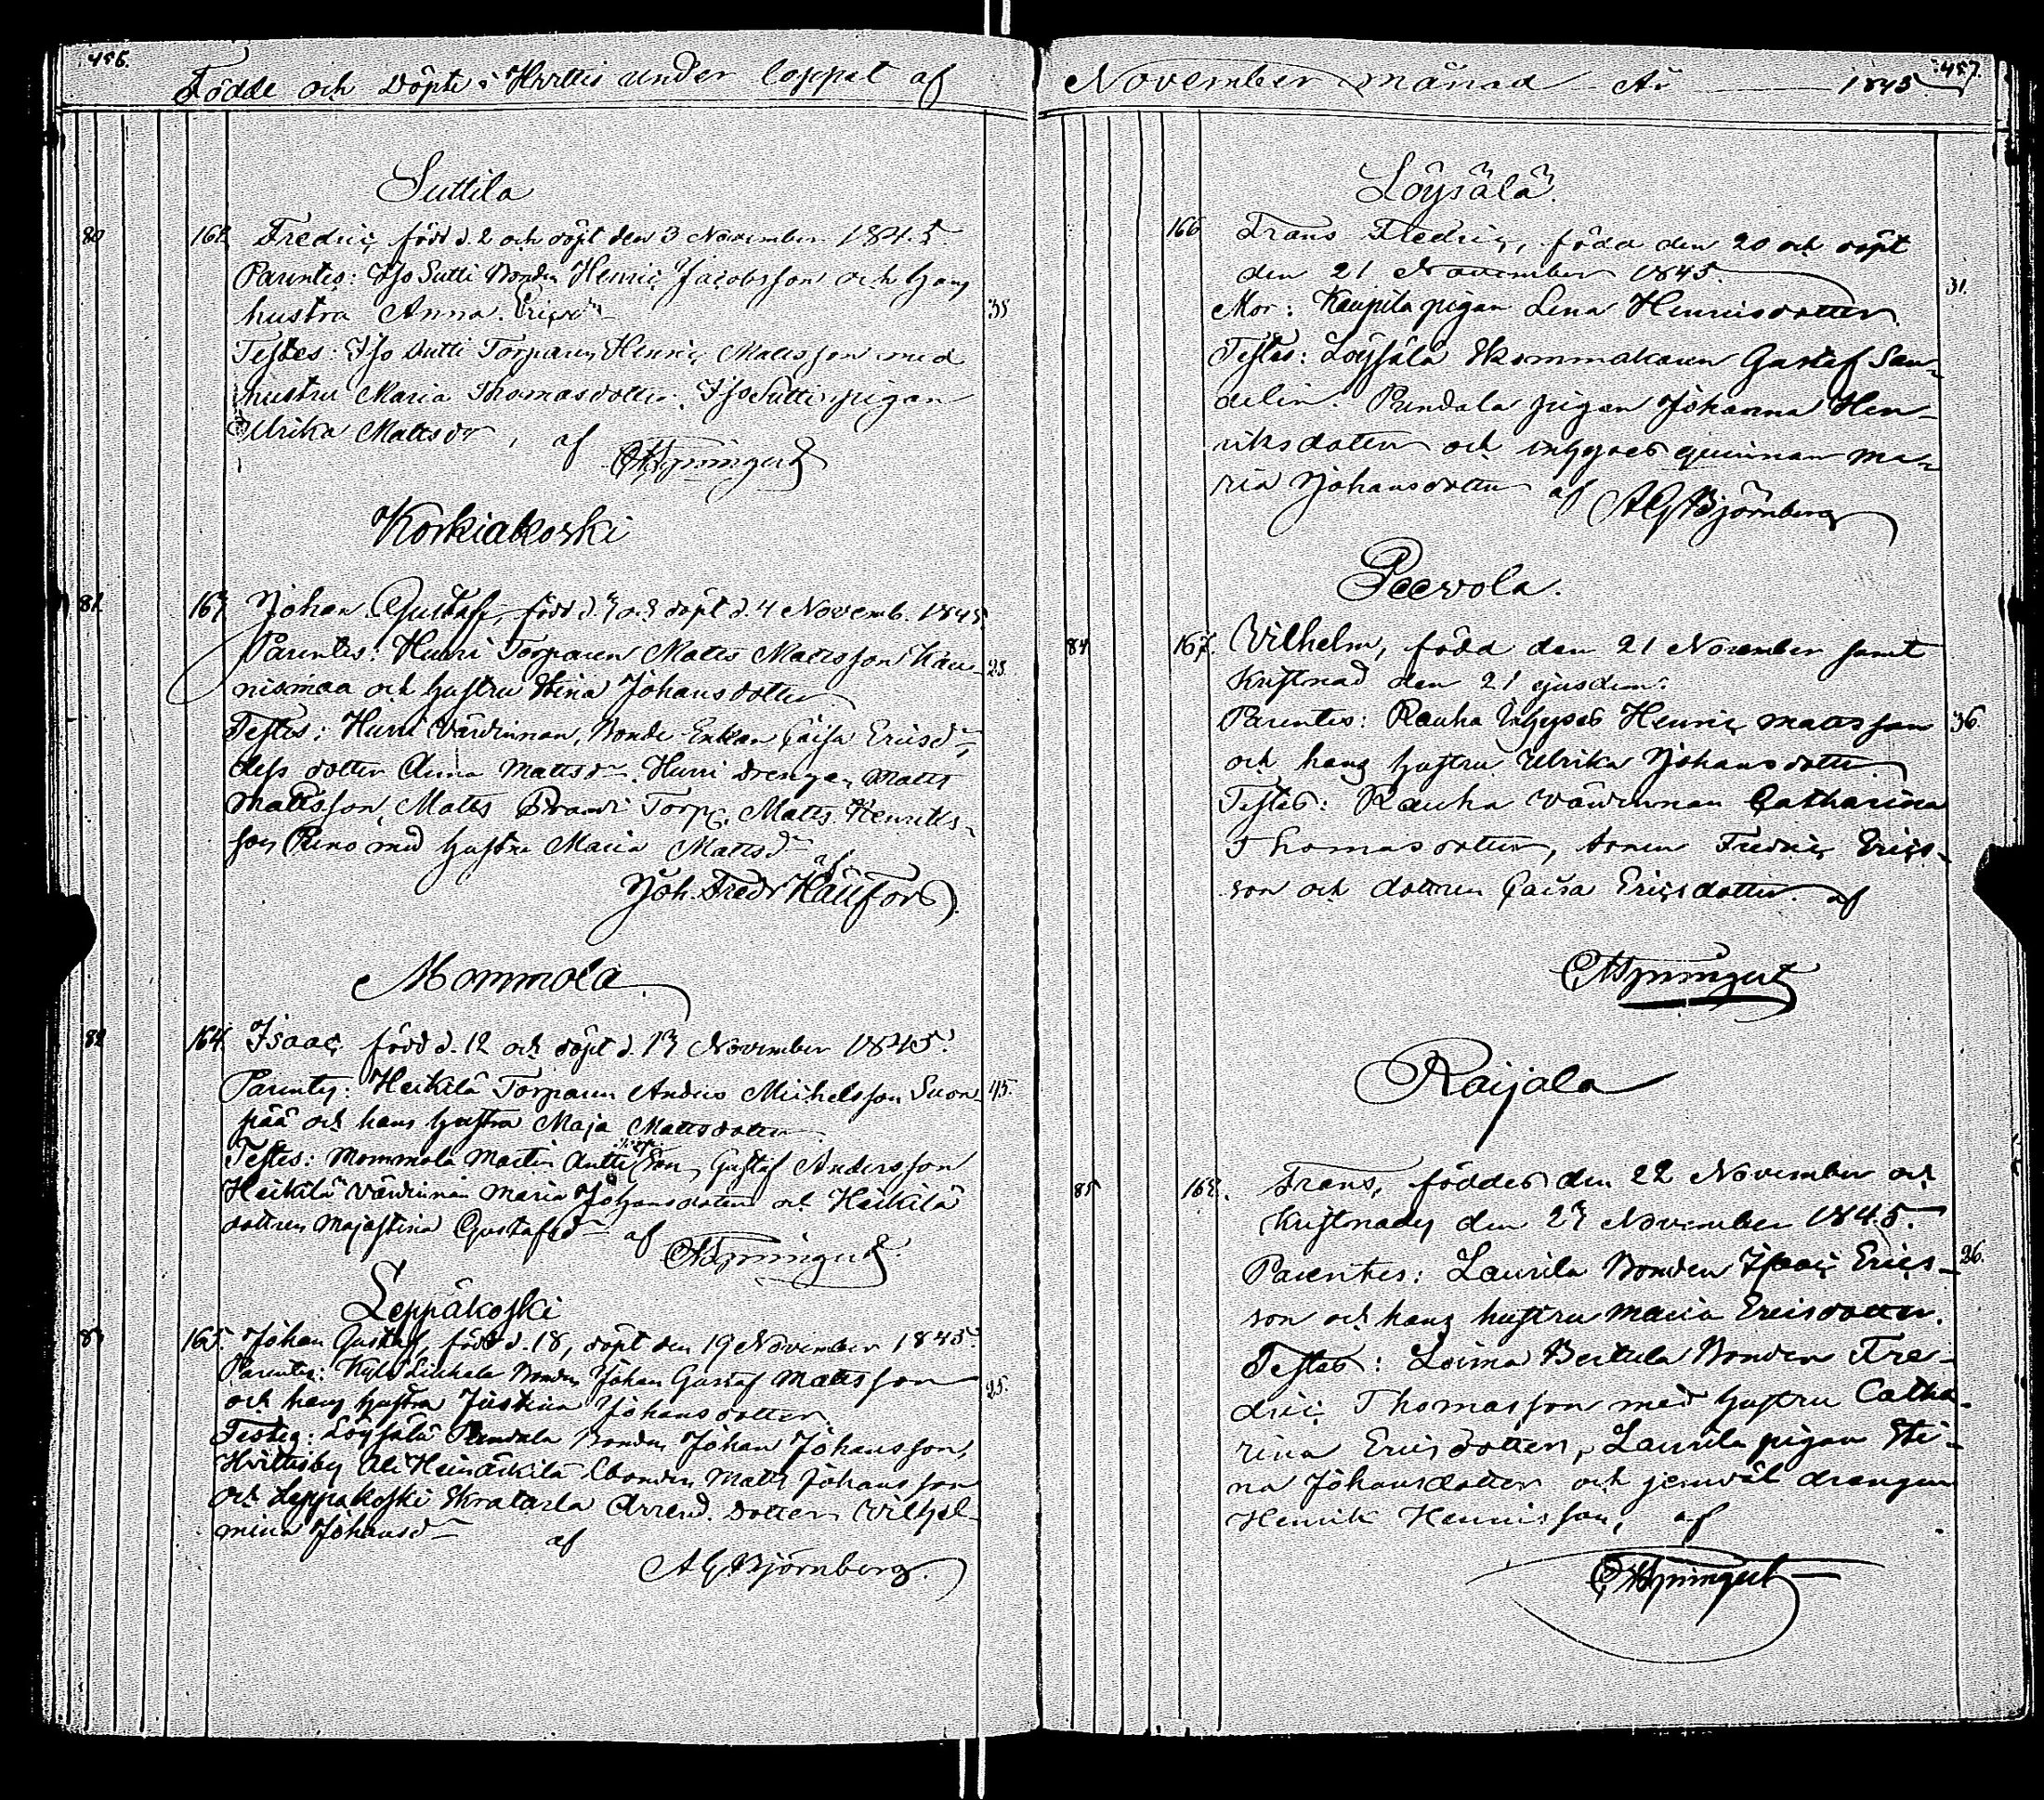 456.
Födde och döpte i Hvittis under loppet af
Suttila
80 162. Fredric, född d. 2 och döpt den 3 November 1845.
Parentes: Iso Sutti Bonden Henric Jacobsson och hans
hustra Anna Ericsdr 35
Testes: Iso Sutti Torparen Henric Mattsson med
hustru Maria Thomasdotter, Iso Sutti pigan
Ulrika Mattsdr, af
Korkiakoski
81 163. Johan Gustaff, född d. 3 och döpt d. 4 Novemb. 1845.
Parentes: Hurri Torparen Matts Mattsson Kau-
nismaa och hustru Stina Johansdotter 23.
Testes: Hurri Värdinnan, Bonde Enkan Caisa Ericsdr
dess dotter Anna Mattsdr. Hurri Drengen Matts
Mattsson, Matts Torp. Matts Henriks-
son med hustru Maria Mattsdr
af
Joh. Fredr
Mommola
82 164. Isaac, född d. 12 och döpt d. 13 November 1845.
Parentes: Heikilä Torparen Anders Michelsson Suon- 45.
pää och hans hustru Maja Mattsdotter
Testes: Mommola Martin Antti Son, Gustaf Andersson
Heikilä Värdinnan Maria Johansdotter och Heikilä
dottren Maja Stina Gustafsdr af
Leppäkoski
83 165. Johan Gustaf, född d. 18, döpt den 19 November 1845.
Parentes: Bonden Johan Gustaf Mattsson
och hans hustru Justina Johansdotter. 25.
Testes: Löysälä Pundala Bonden Johan Johansson,
Hvittisby Ali Heinäkilä Matts Johansson
och Leppäkoski Skratarla Arrend. dotter Vilhel-
mina Johansdr af
A G Björnberg.
457.
November månad År 1845.
Löysälä.
166. Frans Fredric, född den 20 och döpt
den 21 November 1845. 31.
Mor: Kaupila pigan Lena Henricsdotter.
Testes: Löysälä Skommakaren Gustaf San-
delin. Pundala pigan Johanna Hen-
riksdotter och inhyses quinnan Ma-
ria Johansdotter af A G Björnberg
Peewola.
84 167. Vilhelm, född den 21 November samt
Kristnad den 21 ejusdem:
Parentes: Rauha Inhyses Henric Mattsson 36.
och hans hustru Ulrika Johansdotter.
Testes: Rauha värdinnan Catharina
Thomasdotter, sonen Fredric Erics-
son och dottren Caisa Ericsdotter. af
Raijala
85 168. Frans, föddes den 22 November och
Kristnades den 23 November 1845.
Parentes: Laurila Bonden Isaac Erics- 26.
son och hans hustru Maria Ericsdotter.
Testes: Loima Bertula Bonden Fre-
dric Thomasson med hustru Catha-
rina Ericsdotter, Laurila pigan Sti-
na Johansdotter och jemväl drengen
Henrik Henricsson, af